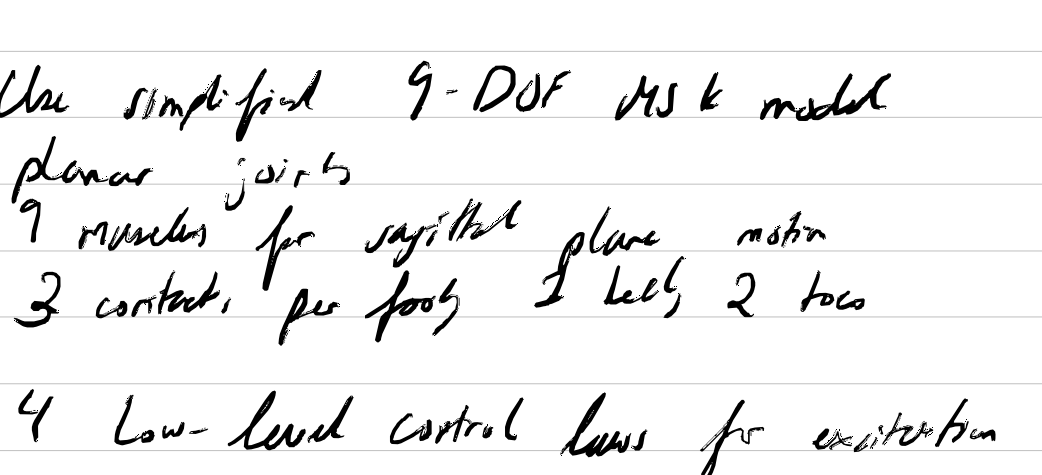 Use simplified 9-DOF MSK model
planar joints
9 muscles for sagittal plane motion
3 contacts per foot, 1 heel, 2 toes
4 Low-level control laws for excitation